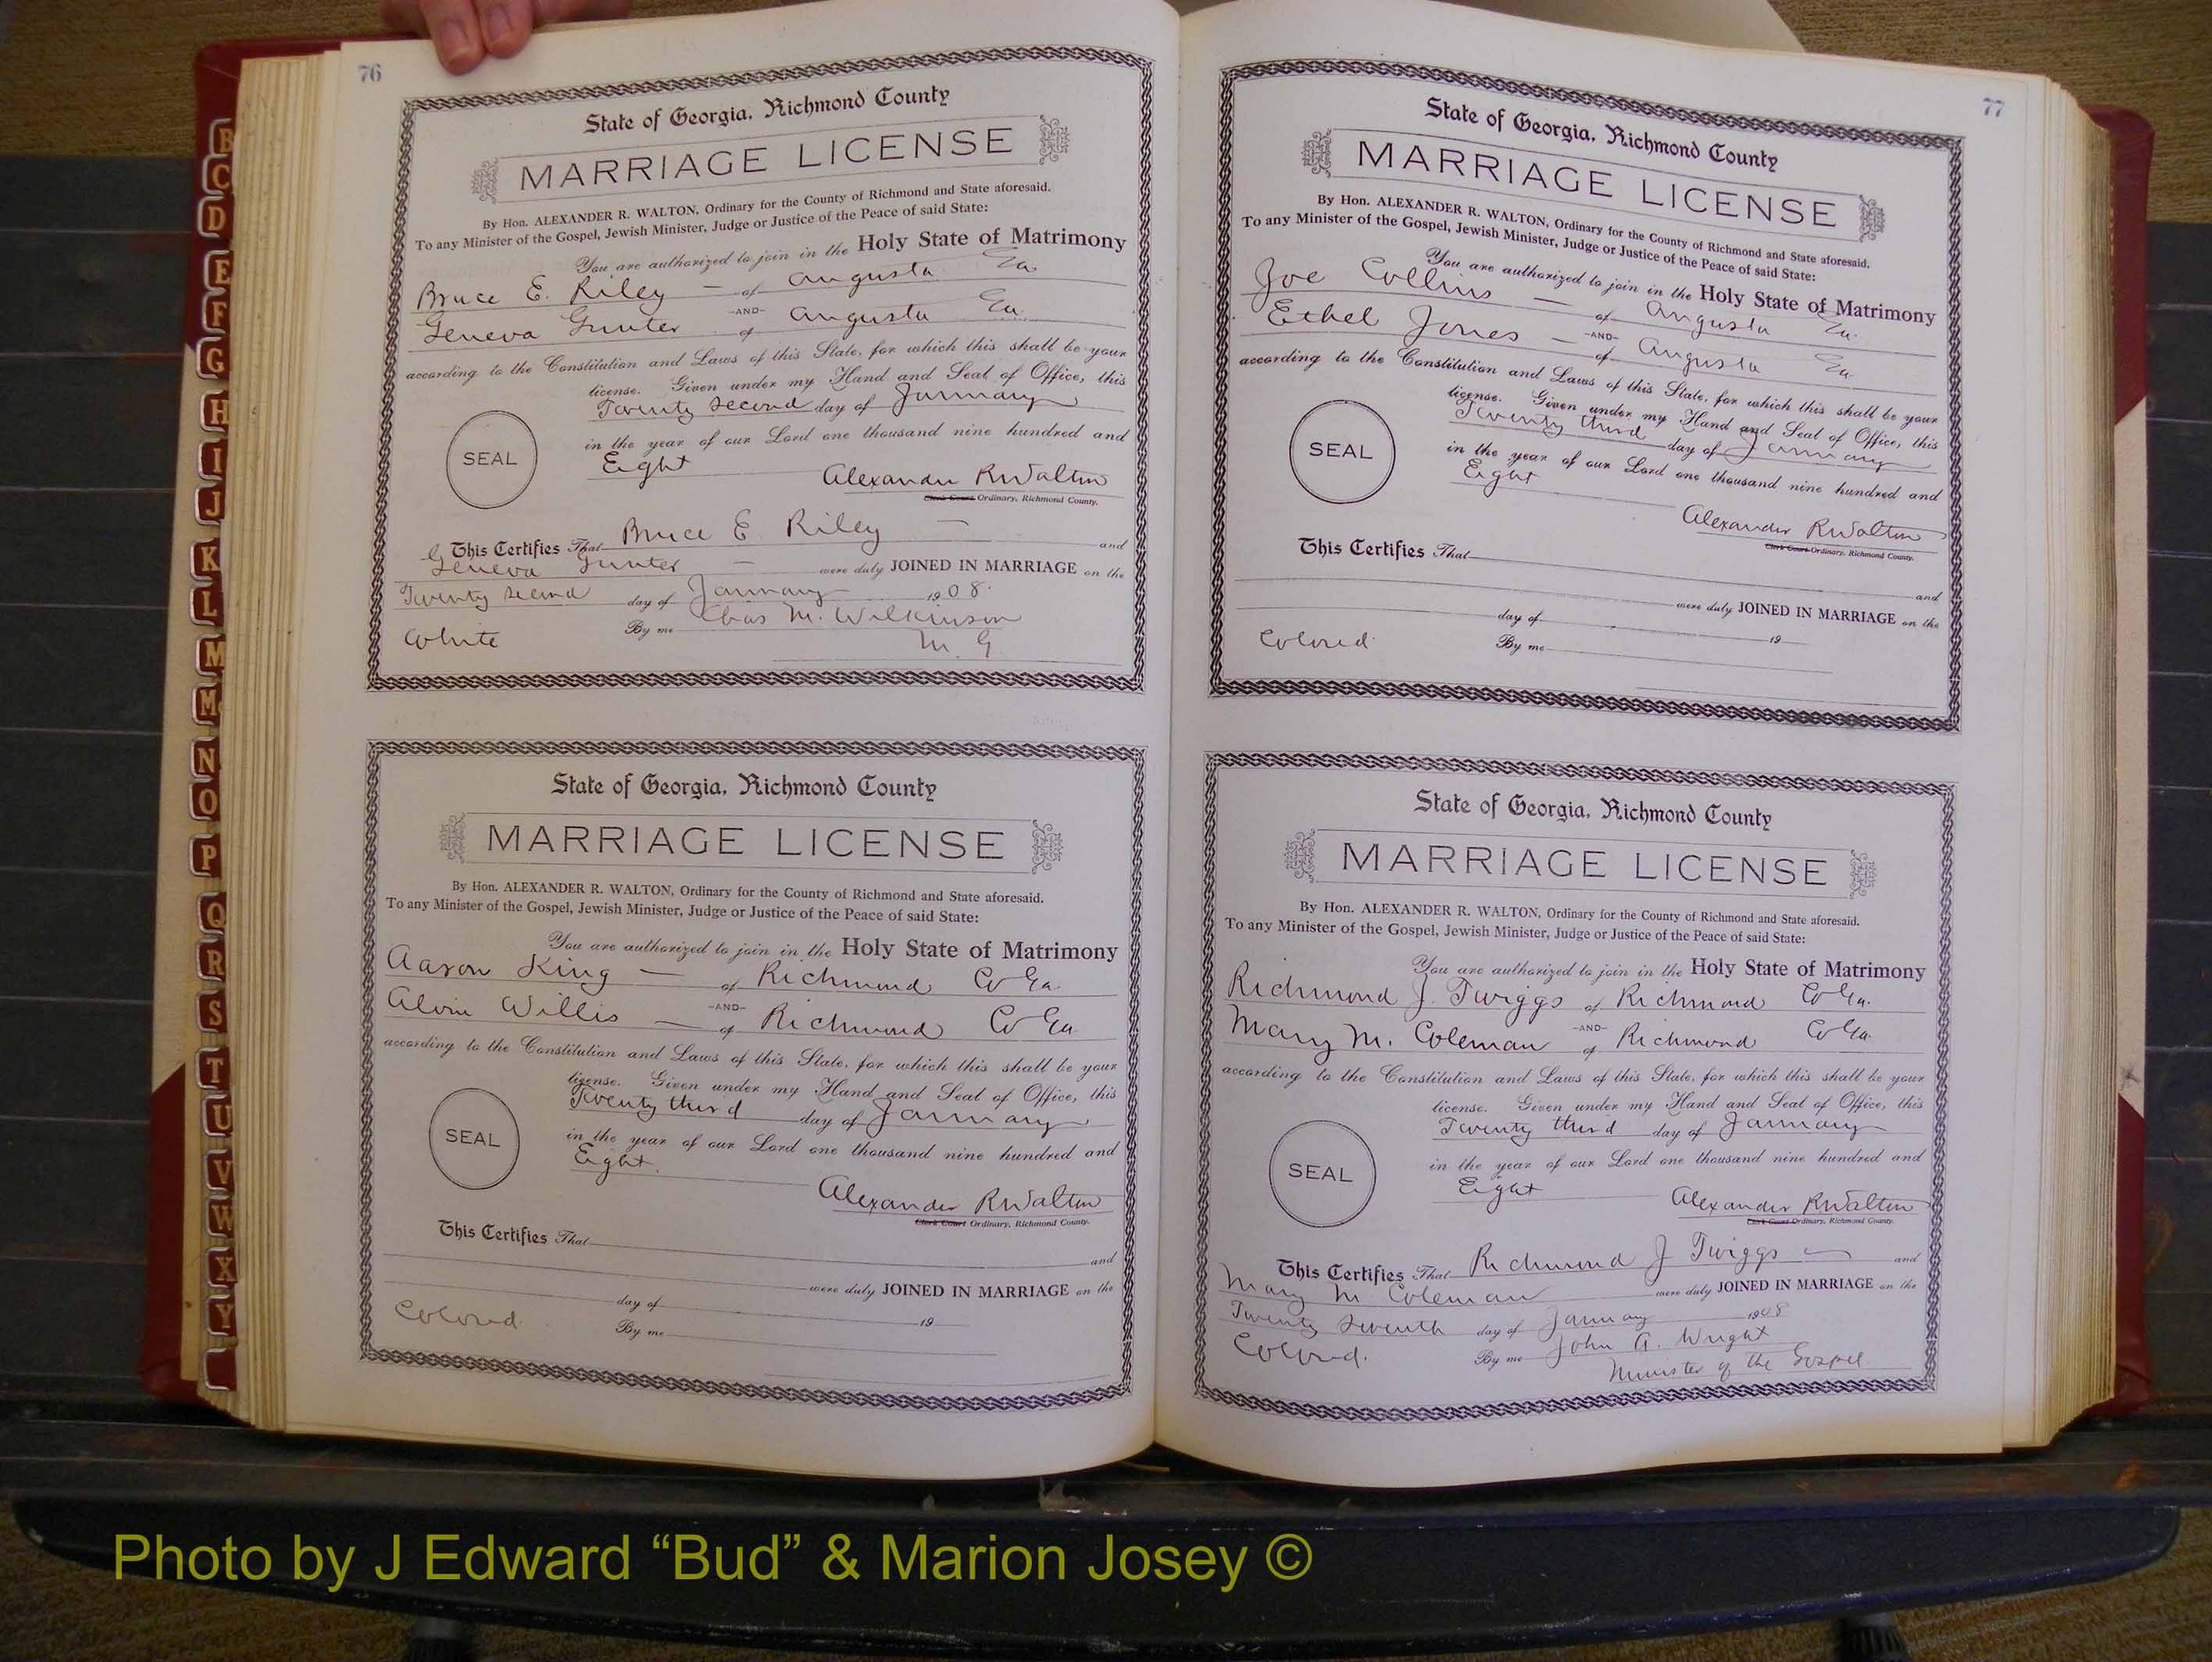 76
State of Georgia, Richmond County
MARRIAGE LICENSE
By Hon. ALEXANDER R. WALTON, Ordinary for the County of Richmond and State aforesaid.
To any Minister of the Gospel, Jewish Minister, Judge or Justice of the Peace of said State:
You are authorized to join in the Holy State of Matrimony
Bruce E. Riley — of Augusta Ga.
-AND-
Geneva Gunter of Augusta Ga.
according to the Constitution and Laws of this State, for which this shall be your
license. Given under my Hand and Seal of Office, this
Twenty second day of January
in the year of our Lord one thousand nine hundred and
Eight
SEAL
Alexander R Walton
Clerk Court Ordinary, Richmond County.
This Certifies That Bruce E. Riley — and
Geneva Gunter — were duly JOINED IN MARRIAGE on the
Twenty second day of January 1908.
White By me Chas M. Wilkinson
M. G.
State of Georgia, Richmond County
MARRIAGE LICENSE
By Hon. ALEXANDER R. WALTON, Ordinary for the County of Richmond and State aforesaid.
To any Minister of the Gospel, Jewish Minister, Judge or Justice of the Peace of said State:
You are authorized to join in the Holy State of Matrimony
Aaron King — of Richmond Co Ga.
-AND-
Alvin Willis — of Richmond Co Ga
according to the Constitution and Laws of this State, for which this shall be your
license. Given under my Hand and Seal of Office, this
Twenty third day of January
in the year of our Lord one thousand nine hundred and
Eight.
SEAL
Alexander R Walton
Clerk Court Ordinary, Richmond County.
This Certifies That
and
were duly JOINED IN MARRIAGE on the
day of 19
Colored. By me
77
State of Georgia, Richmond County
MARRIAGE LICENSE
By Hon. ALEXANDER R. WALTON, Ordinary for the County of Richmond and State aforesaid.
To any Minister of the Gospel, Jewish Minister, Judge or Justice of the Peace of said State:
You are authorized to join in the Holy State of Matrimony
Joe Collins — of Augusta Ga.
-AND-
Ethel Jones — of Augusta Ga.
according to the Constitution and Laws of this State, for which this shall be your
license. Given under my Hand and Seal of Office, this
Twenty third day of January
in the year of our Lord one thousand nine hundred and
Eight
SEAL
Alexander R Walton
Clerk Court Ordinary, Richmond County.
This Certifies That
and
were duly JOINED IN MARRIAGE on the
day of 19
Colored. By me
State of Georgia, Richmond County
MARRIAGE LICENSE
By Hon. ALEXANDER R. WALTON, Ordinary for the County of Richmond and State aforesaid.
To any Minister of the Gospel, Jewish Minister, Judge or Justice of the Peace of said State:
You are authorized to join in the Holy State of Matrimony
Richmond J. Twiggs of Richmond Co Ga.
-AND-
Mary M. Coleman of Richmond Co Ga.
according to the Constitution and Laws of this State, for which this shall be your
license. Given under my Hand and Seal of Office, this
Twenty third day of January
in the year of our Lord one thousand nine hundred and
Eight
SEAL
Alexander R Walton
Clerk Court Ordinary, Richmond County.
This Certifies That Richmond J Twiggs — and
Mary M Coleman were duly JOINED IN MARRIAGE on the
Twenty Seventh day of January 1908
Colored. By me John A. Wright
Minister of the Gospel
B
C
D
E
F
G
H
I
J
K
L
M
Mc
N
O
P
Q
R
S
T
U
V
W
X
Y
Photo by J Edward “Bud” & Marion Josey ©